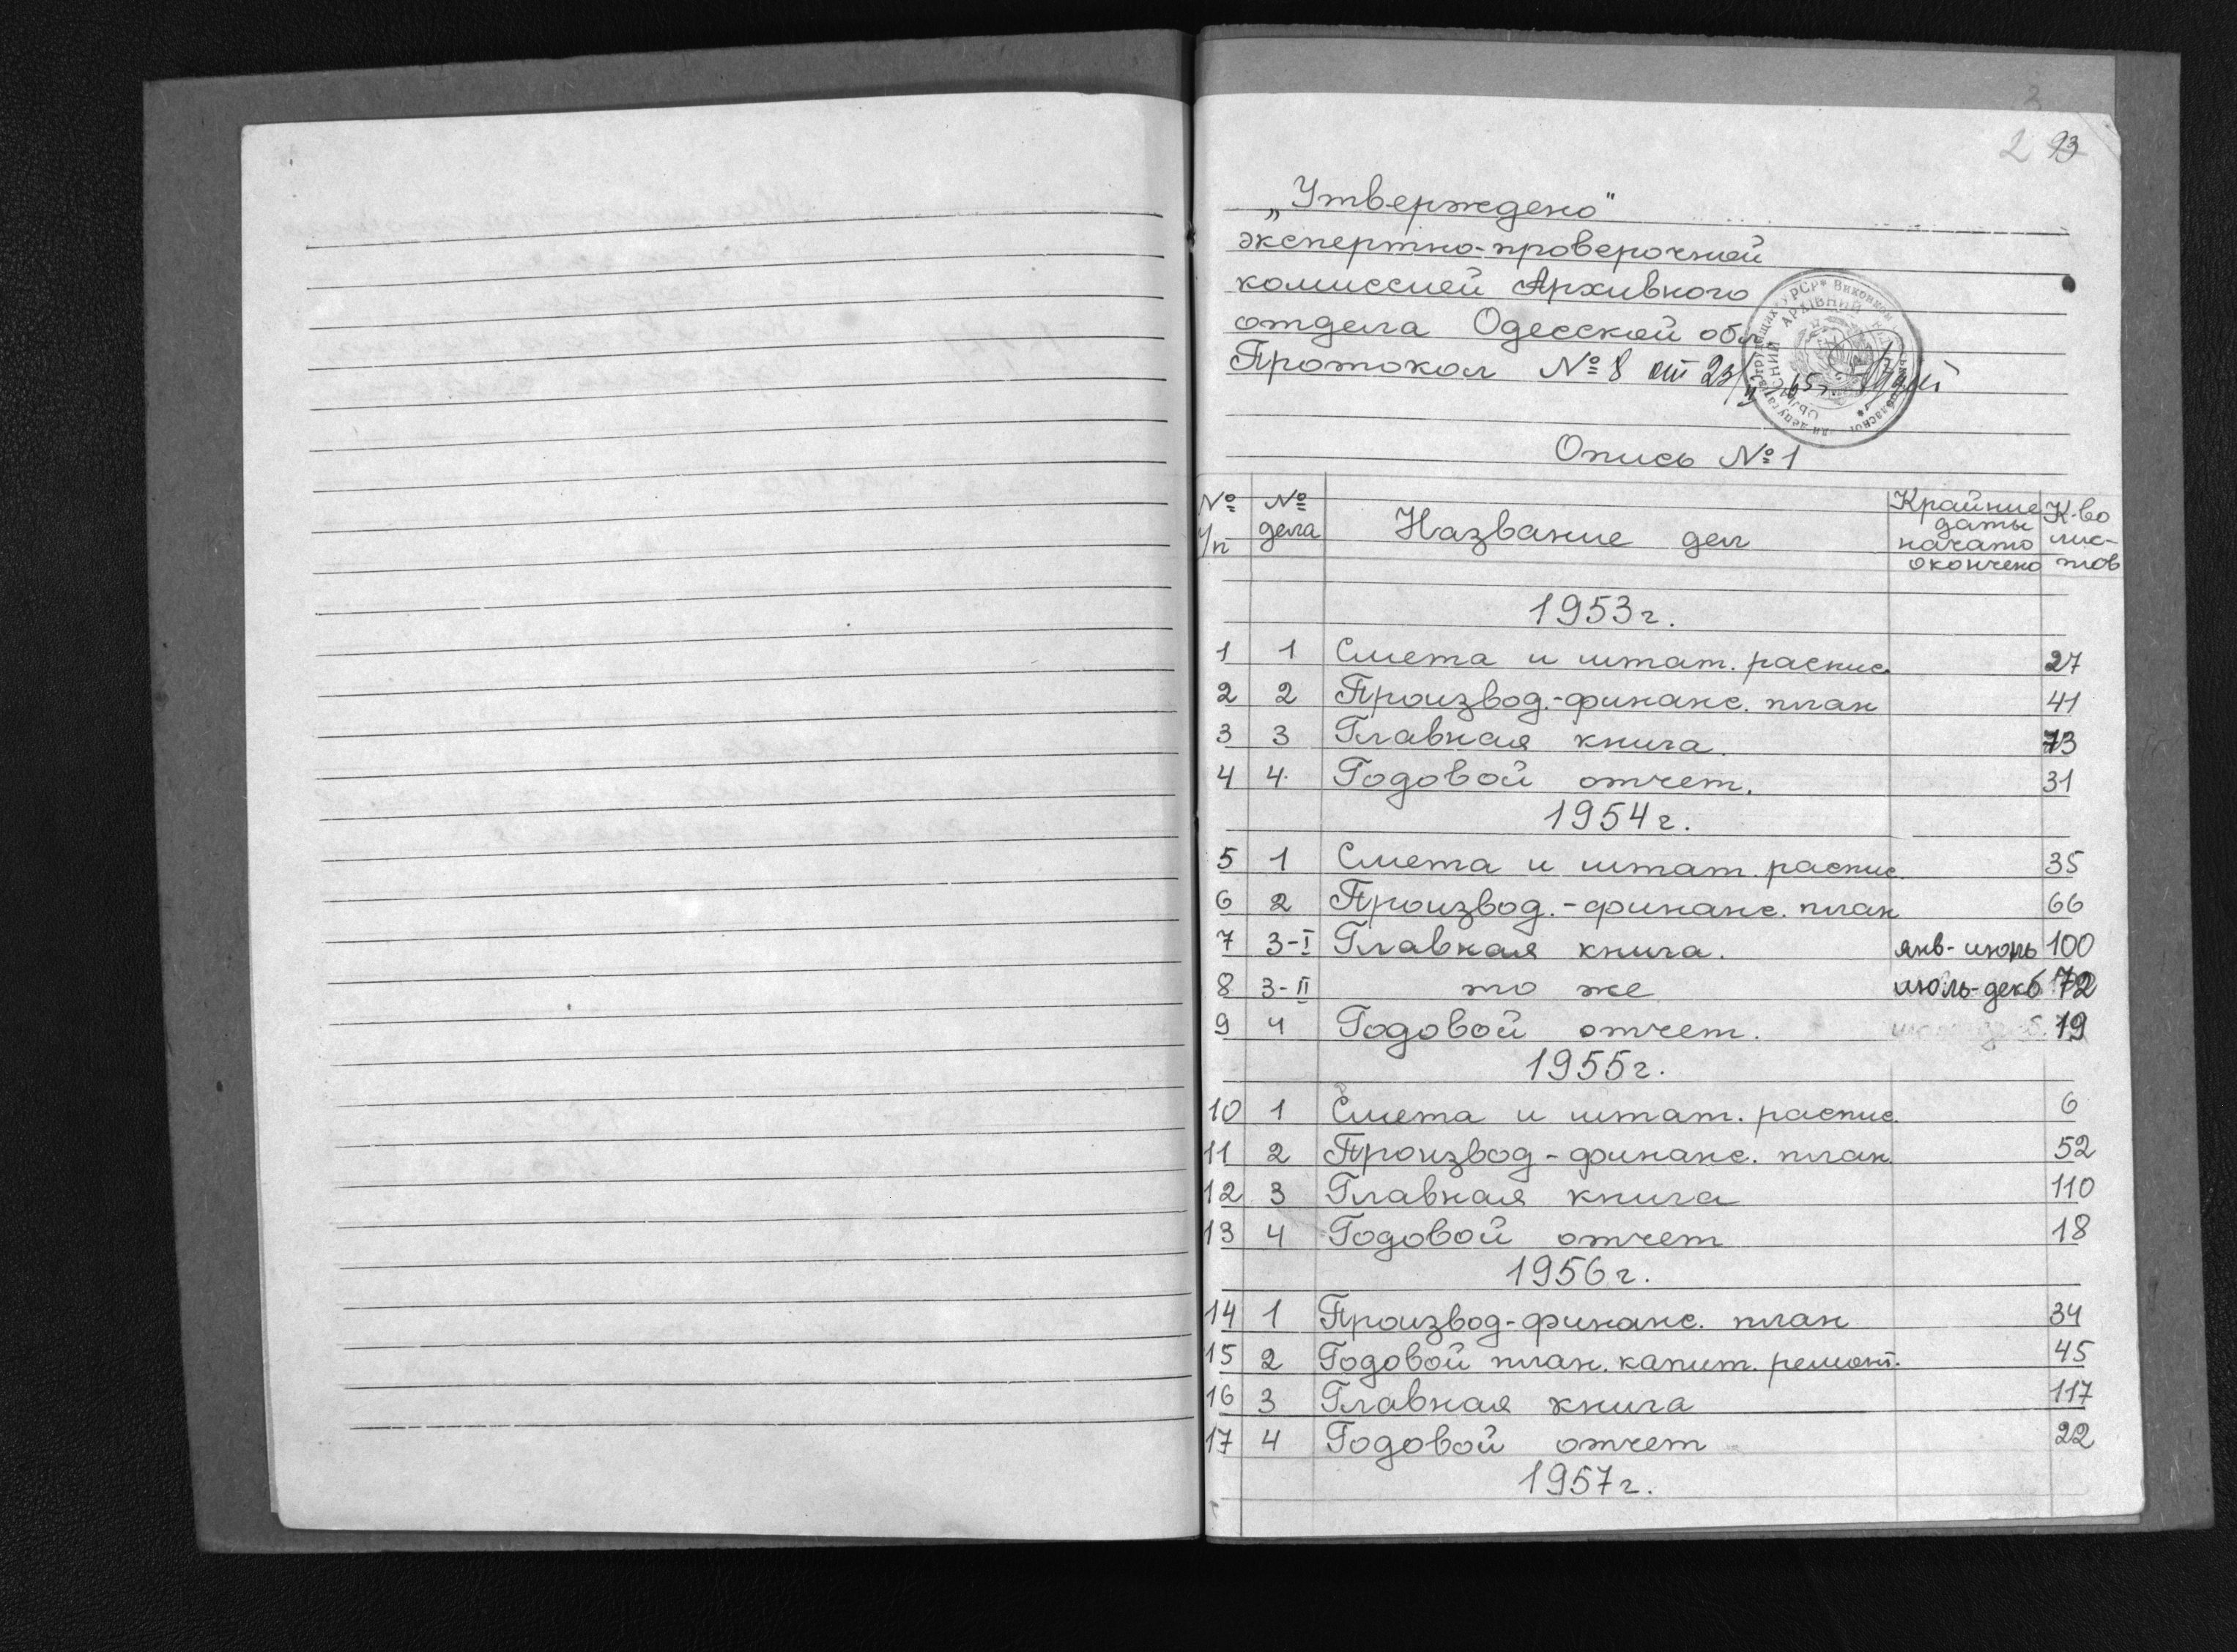 3
2 93
„Утверждено"
экспертно-проверочной
комиссией Архивного
отдела Одесской обл
Протокол № 8 от 23/
Опись № 1
№ п/п № дела Название дел Крайние даты начато окончено К-во лис-тов
1953 г.
1 1 Смета и штат. распис. 27
2 2 Производ.-финанс. план 41
3 3 Главная книга. 73
4 4 Годовой отчет. 31
1954 г.
5 1 Смета и штат. распис. 35
6 2 Производ.-финанс. план 66
7 3-I Главная книга. янв-июнь 100
8 3-II то же июль-декб 72
9 4 Годовой отчет. 19
1955 г.
10 1 Смета и штат. распис. 6
11 2 Производ-финанс. план. 52
12 3 Главная книга 110
13 4 Годовой отчет 18
1956 г.
14 1 Производ-финанс. план 34
15 2 Годовой план. капит. ремонт. 45
16 3 Главная книга 117
17 4 Годовой отчет 22
1957 г.